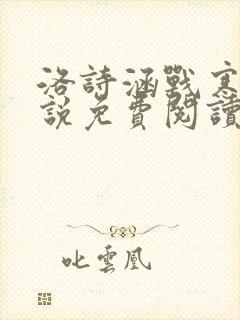 洛詩涵戰寒
說免費閱讀
叱雲凰